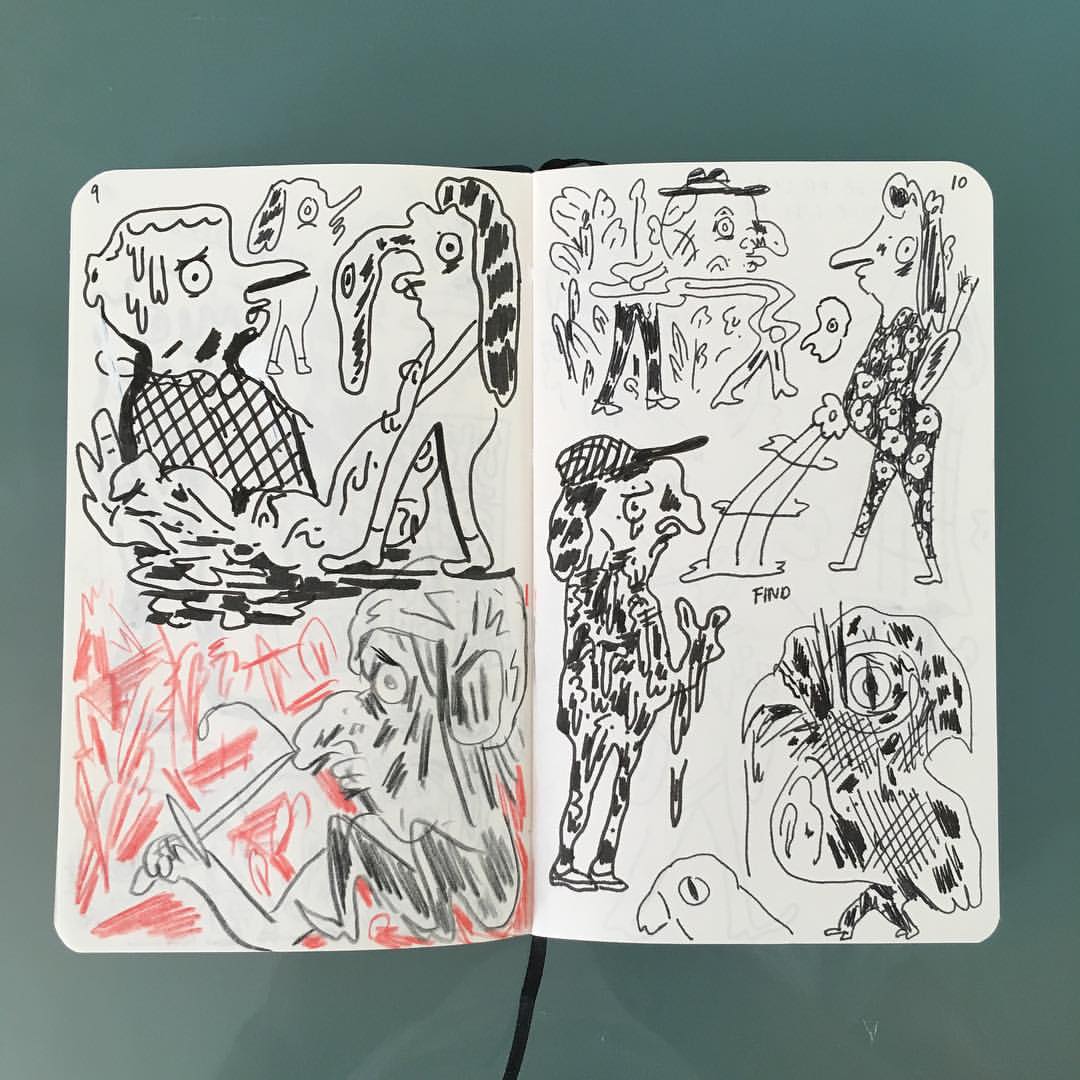 9
10
FIND